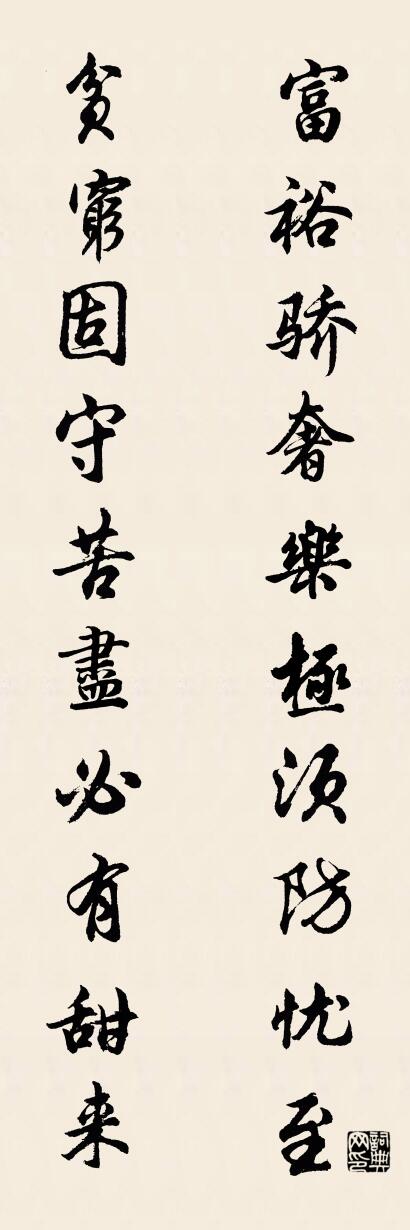 富裕骄奢樂極须防忧至
貧窮固守苦盡必有甜来
詞典网印